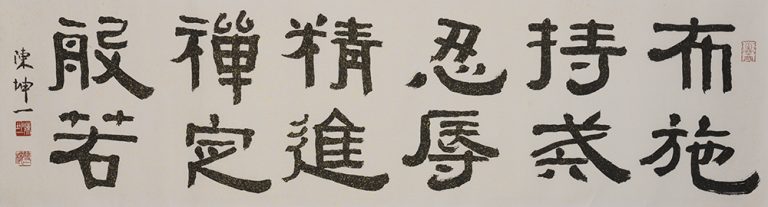 布施
持戒
忍辱
精進
禪定
般若
陳坤一